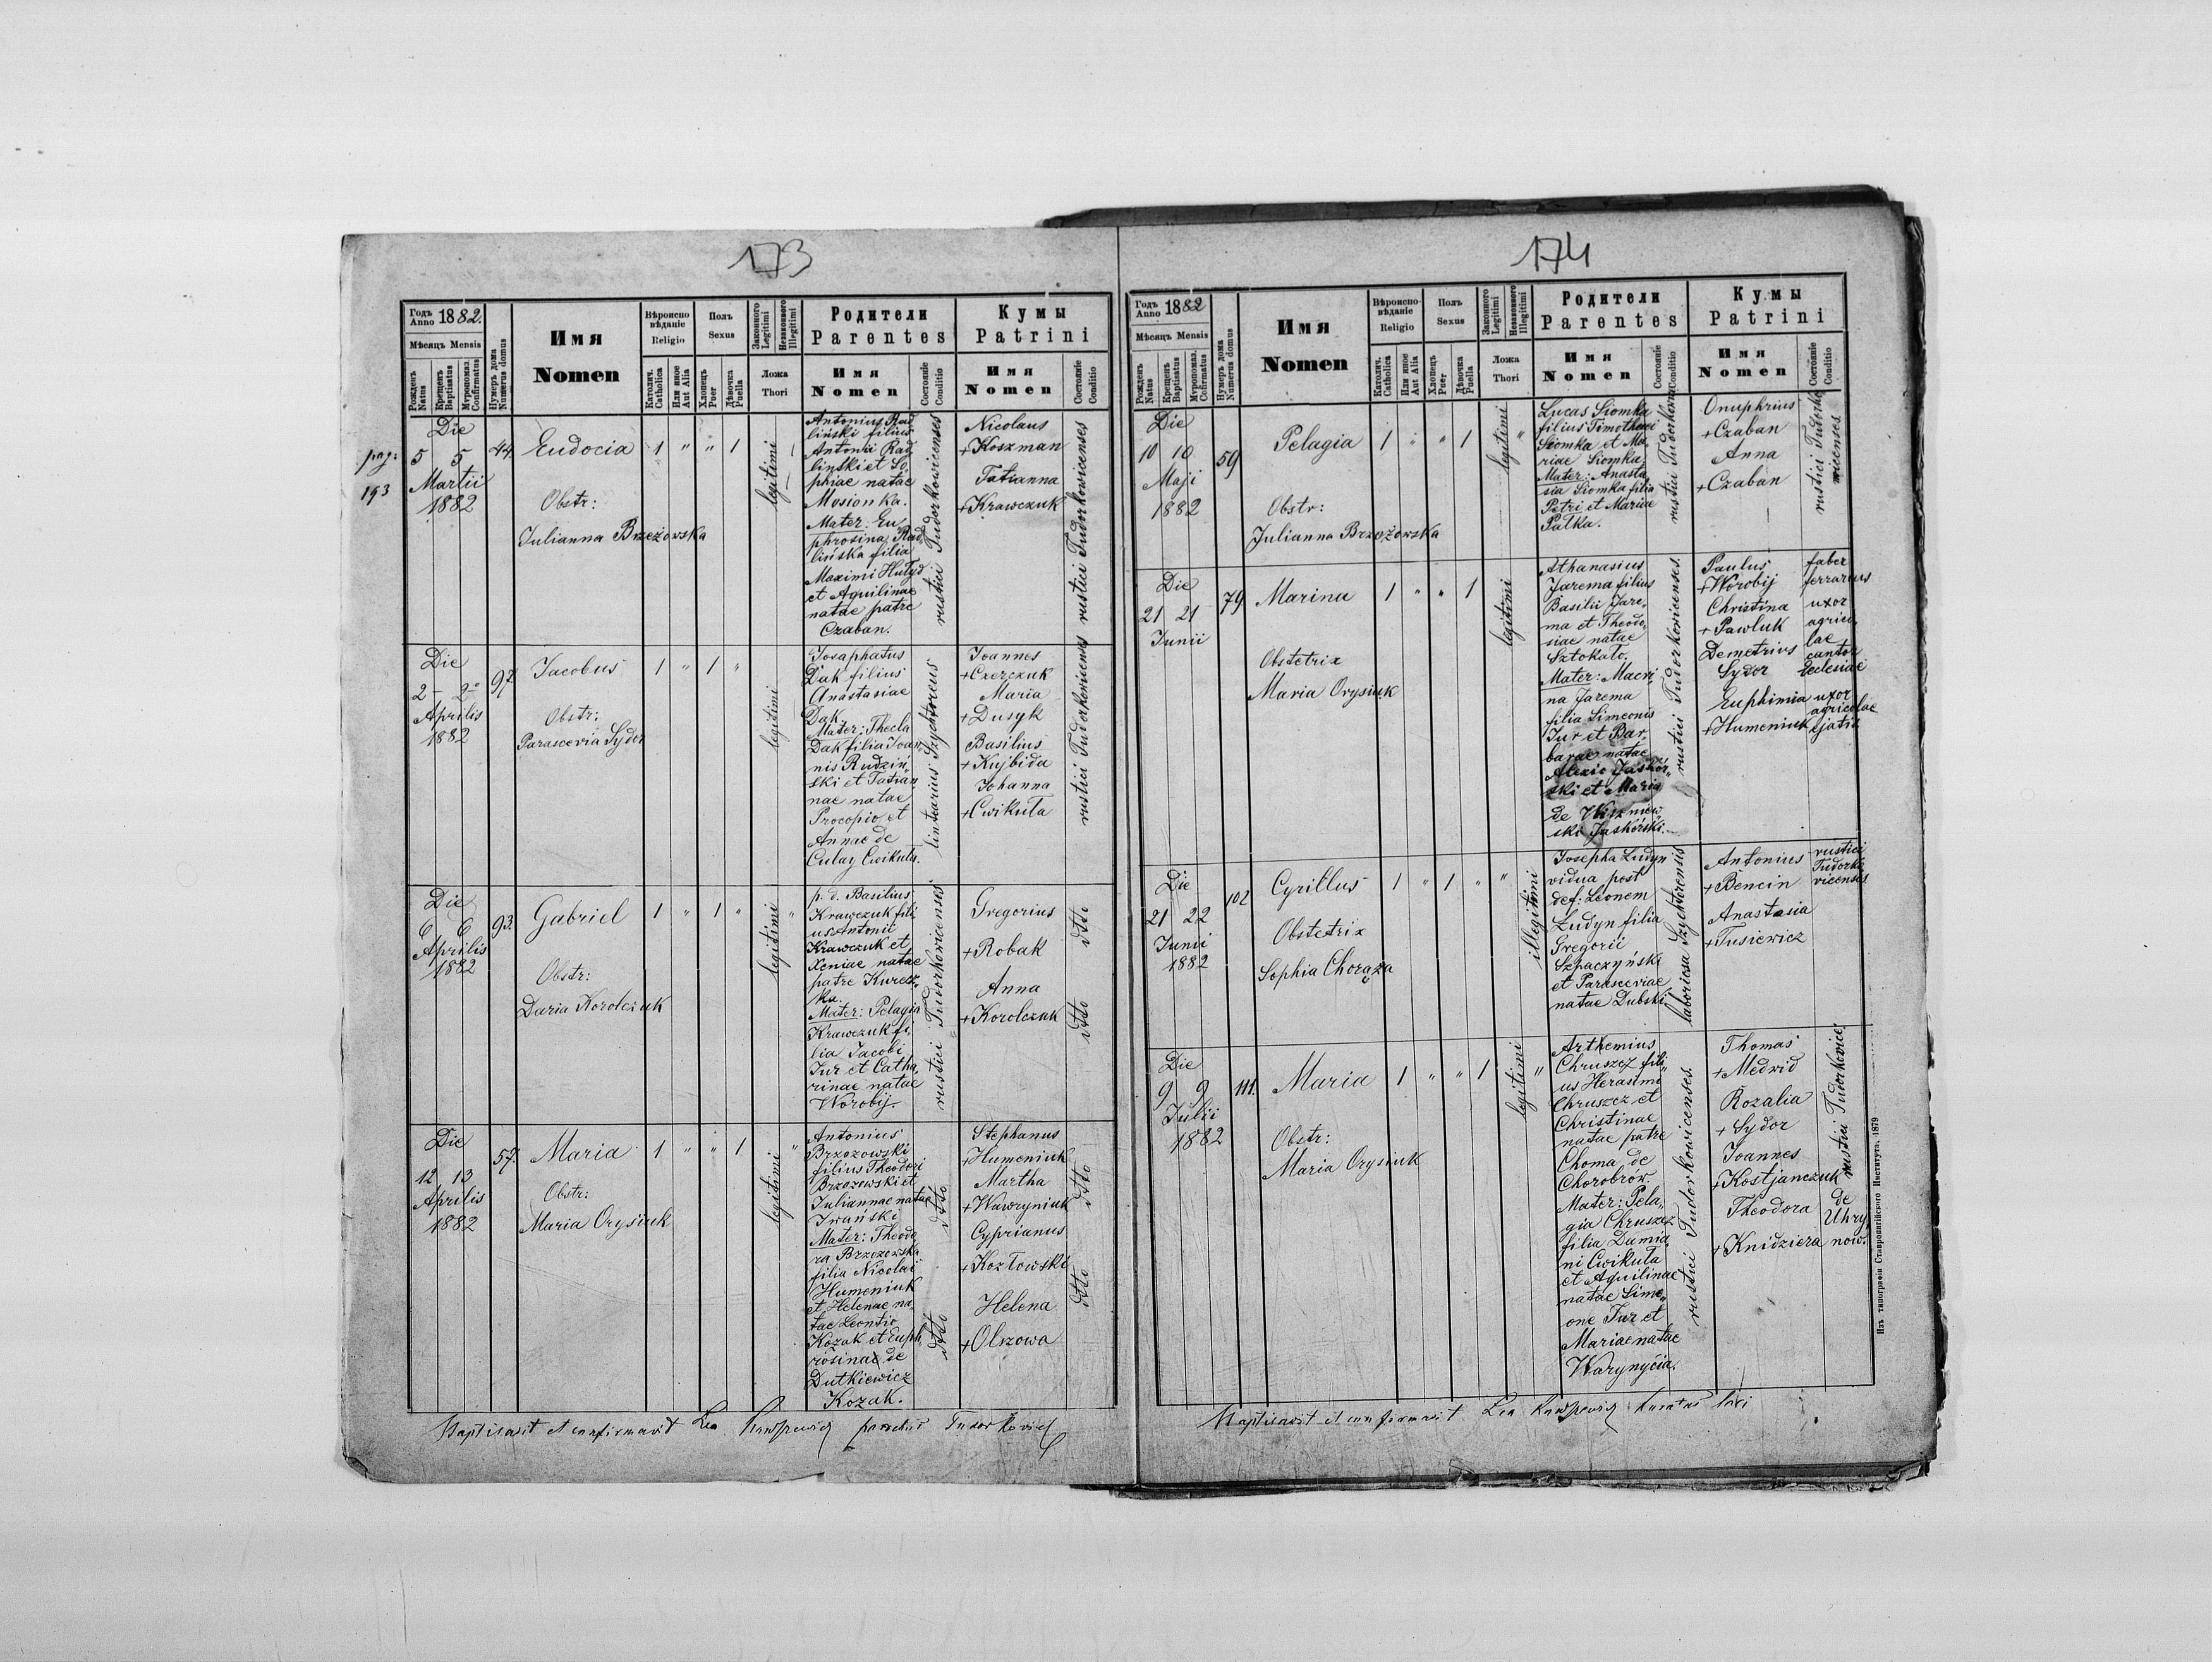 173
Годъ Anno 1882.
Мѣсяцъ Mensis
Рожденъ Natus
Крещенъ Baptisatus
Мѵропомаз. Confirmatus
Нумеръ дома Numerus domus
Имя
Nomen
Вѣроиспо-
вѣданіе
Religio
Католич. Catholica
Или иное Aut Alia
Полъ
Sexus
Хлопецъ Puer
Дѣвочка Puella
Законного Legitimi
Незаконного Illegitimi
Ложа
Thori
Родители
Parentes
Имя
Nomen
Состояніе Conditio
Кумы
Patrini
Имя
Nomen
Состояніе Conditio
pag:
193
Die
5 5
Martii
1882
44.
Eudocia
1 " " 1
Obstr:
Julianna Brzeżowska
legitimi
Antonius Rad
liński filius
Antonii Rad
linski et So
phiae natae
Mosionka.
Mater: Eu
phrosina Rad
lińska filia
Maximi Hułyd
et Aquilinae
natae patre
Czaban.
rustici Tudorkowicenses
Nicolaus
+Koszman
Tatianna
+Krawczuk
rustici Tudorkowicenses
Die
2 2
Aprilis
1882
97.
Jacobus
1 " 1 "
Obstr:
Parascevia Sydor
legitimi
Josaphatus
Dak filius
Anastasiae
Dak.
Mater: Thecla
Dak filia Joan
nis Rudziń
ski et Tatian
nae natae
Procopio et
Annae de
Culay Cwikuła.
lintearius Szychtoreus
Joannes
+Czerczuk
Maria
+Dusyk
Basilius
+Kujbida
Johanna
+Cwikuła
rustici Tudorkowicenses
Die
6 6
Aprilis
1882
93.
Gabriel
1 " 1 "
Obstr:
Daria Korolczuk
legitimi "
p. d. Basilius
Krawczuk fili
us Antonii
Krawczuk et
Xeniae natae
patre Kurcz
ka.
Mater: Pelagia
Krawczuk fi
lia Jacobi
Jur et Catha
rinae natae
Worobij.
rustici Tudorkowicensis
Gregorius
+Robak
Anna
+Korolczuk
dtto dtto
Die
12 13
Aprilis
1882
57.
Maria
1 " " 1
Obstr:
Maria Orysiuk
legitimi "
Antonius
Brzozowski
filius Theodori
Brzozowski et
Juliannae natae
Iwański
Mater: Theodo
ra Brzozowska
filia Nicolai
Humeniuk
et Helenae na
tae Leontio
Kozak et Euph
rosinae de
Dutkiewicz
Kozak.
dtto dtto
Stephanus
+Humeniuk
Martha
+Wawryniuk
Cyprianus
+Kozłowski
Helena
+Olszowa
dtto dtto
Baptisavit et confirmavit Leo parochus
174
Годъ Anno 1882
Мѣсяцъ Mensis
Рожденъ Natus
Крещенъ Baptisatus
Мѵропомаз. Confirmatus
Нумеръ дома Numerus domus
Имя
Nomen
Вѣроиспо-
вѣданіе
Religio
Католич. Catholica
Или иное Aut Alia
Полъ
Sexus
Хлопецъ Puer
Дѣвочка Puella
Законного Legitimi
Незаконного Illegitimi
Ложа
Thori
Родители
Parentes
Имя
Nomen
Состояніе Conditio
Кумы
Patrini
Имя
Nomen
Состояніе Conditio
Die
10 10
Maji
1882
59
Pelagia
1 " " 1
Obstr:
Julianna Brzożowska
legitimi "
Lucas Siomka
filius Timothaei
Siomka et Ma
riae Siomka
Mater: Anasta
sia Siomka filia
Petri et Mariae
Pałka.
Onuphrius
+Czaban
Anna
+Czaban
rustici Tudorko
wicenses.
Die
21 21
Junii
79
Marina
1 " " 1
Obstetrix
Maria Orysiuk
legitimi
Athanasius
Jarema filius
Basilii Jare
ma et Theodo
siae natae
Sztokało.
Mater: Macri
na Jarema
filia Simeonis
Jur et Bar
barae natae
Alexio Jaskór
ski et Maria
de Wiszniew
ski Jaskórski.
rustici Tudorkowicenses.
Paulus faber
+Worobij ferrarius
Christina uxor
+Pawluk agrico
lae
Demetrius cantor
Sydor Ecclesiae
Euphimia uxor
agricolae
+Humeniuk ejatis
Die
21 22
Junii
1882
102
Cyrillus
1 " 1 " "
Obstetrix
Sophia Chorąża
illegitimi
Josepha Ludyn
vidua post
def: Leonem
Ludyn filia
Gregorii
Szpaczyński
et Parasceviae
natae Dubski
Antonius
+Bencin
Anastasia
+Tusiewicz
rustici
Tudorko
vicenses
Die
9 9
Julii
1882
111.
Maria
1 " " 1
Obstr:
Maria Orysiuk
legitimi "
Arthemius
Chruszcz fili
us Herasimi
Chruszcz et
Christinae
natae patre
Choma de
Chorobrów.
Mater: Pela
gia Chruszcz
filia Damia
ni Cwikuła
et Aquilinae
natae Sime
one Jur et
Mariae natae
Warynycia.
rustici Tudorkowicenses.
Thomas
+Medwid
Rozalia
+Sydor
Joannes
+Kostjanczuk
Theodora
+Knidziera
de
Uhry
now.
Baptisavit et confirmavit Leo curatus loci
Изъ типографіи Ставропигійского Института, 1879